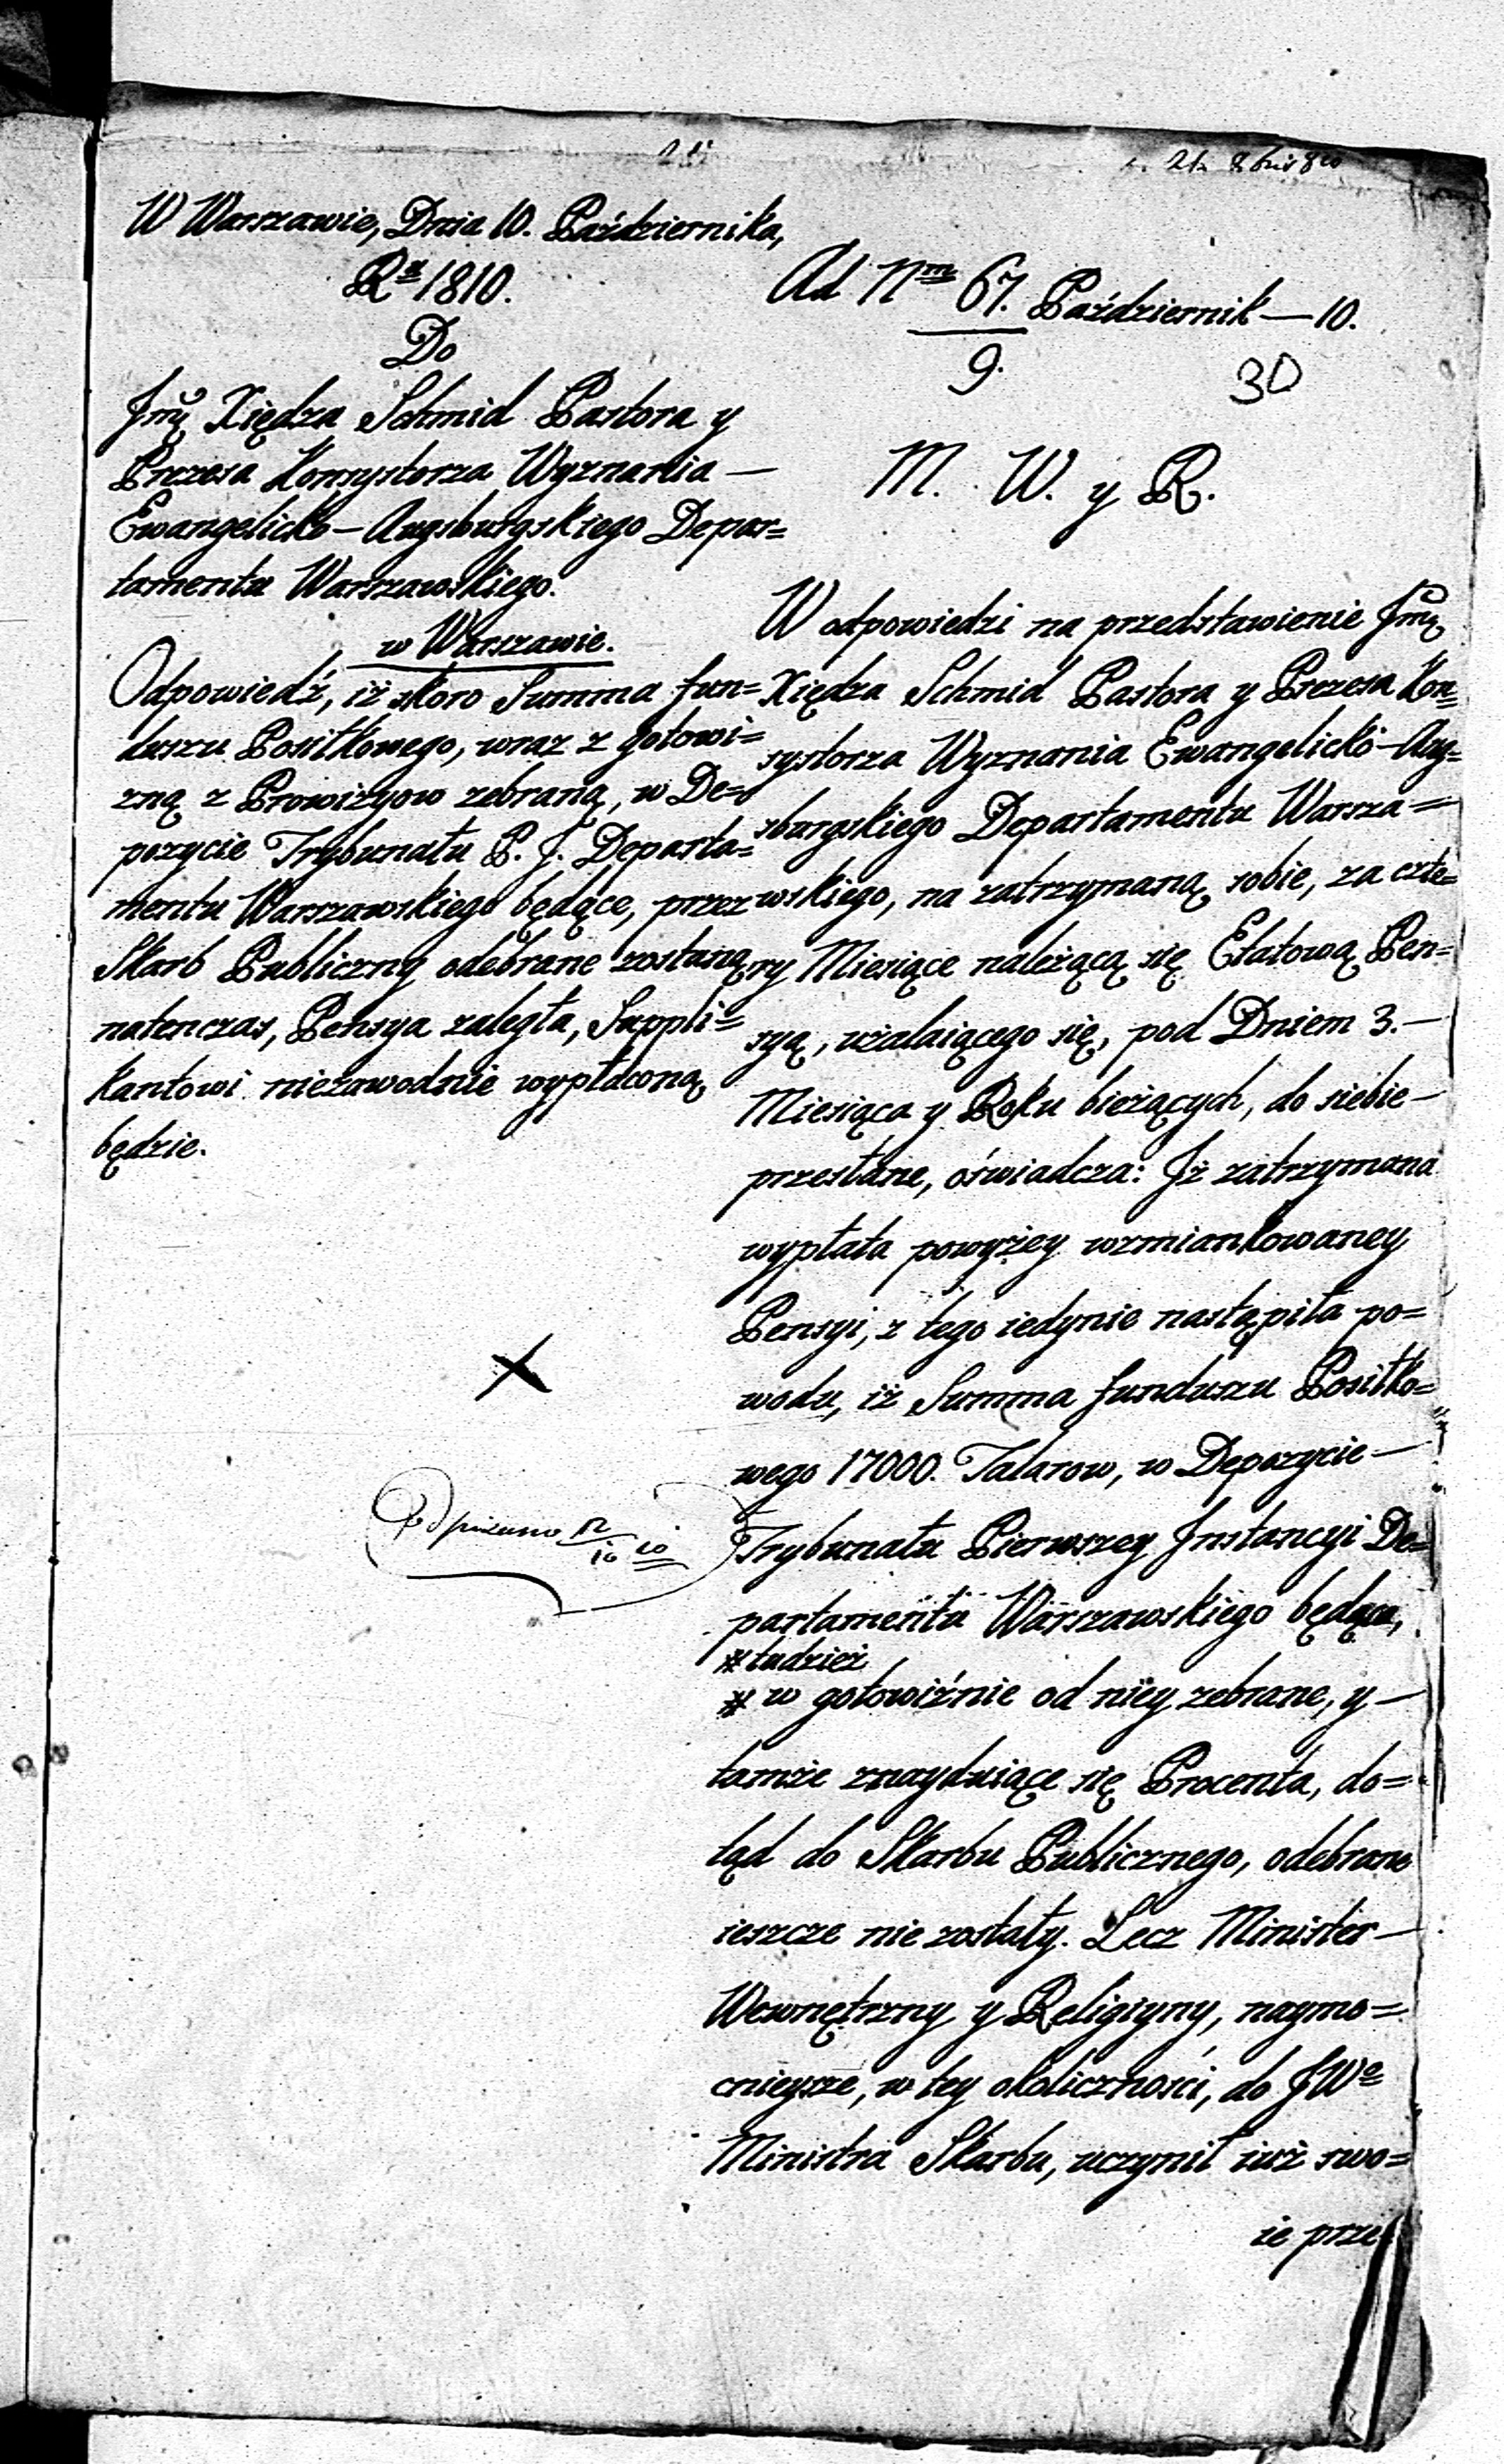 W Warszawie, Dnia 10. Października,
Rᵘ 1810.
Do
Jmę Xiędza Schmid Pastora y
Prezesa Konsystorza Wyznania —
Ewangelicko-Augsburgskiego Depar=
tamentu Warszawskiego.
w Warszawie.
Odpowiedź, iż skoro Summa fun=
duszu Positkowego, wraz z gotowi=
zną z Prowizyow zebraną, w De=
pozycie Trybunału P. J. Departa=
mentu Warszawskiego będące, przez
Skarb Publiczny odebrane zostaną,
natenczas, Pensya zaległa, Suppli=
kantowi niezawodnie wypłaconą
będzie.
Ad Nᵐ 67. Październik — 10.
9.
30
M. W. y R.
W odpowiedzi na przedstawienie Jmę
Xiędza Schmid Pastora y Prezesa Kon=
systorza Wyznania Ewangelicko-Aug=
sburgskiego Departamentu Warsza=
wskiego, na zatrzymaną sobie, za czte=
ry Miesiące należącą się Etatową Pen=
syą, użalaiącego się, pod Dniem 3. —
Miesiąca y Roku bieżących, do siebie —
przesłane, oświadcza: Jż zatrzymana
wypłata powyżey wzmiankowaney
Pensyi, z tego iedynie nastąpiła po=
wodu, iż Summa funduszu Positko=
wego 17000. Talarow, w Depozycie —
Trybunału Pierwszey Jnstancyi De=
partamentu Warszawskiego będąca,
* tudzież
* w gotowiźnie od niey zebrane, y —
tamże znayduiące się Procenta, do=
tąd do Skarbu Publicznego, odebrane
ieszcze nie zostały. Lecz Minister —
Wewnętrzny y Religiyny, naymo=
cnieysze, w tey okoliczności, do JWᵒ
Ministra Skarbu, uczynił iuż swo=
ie prze